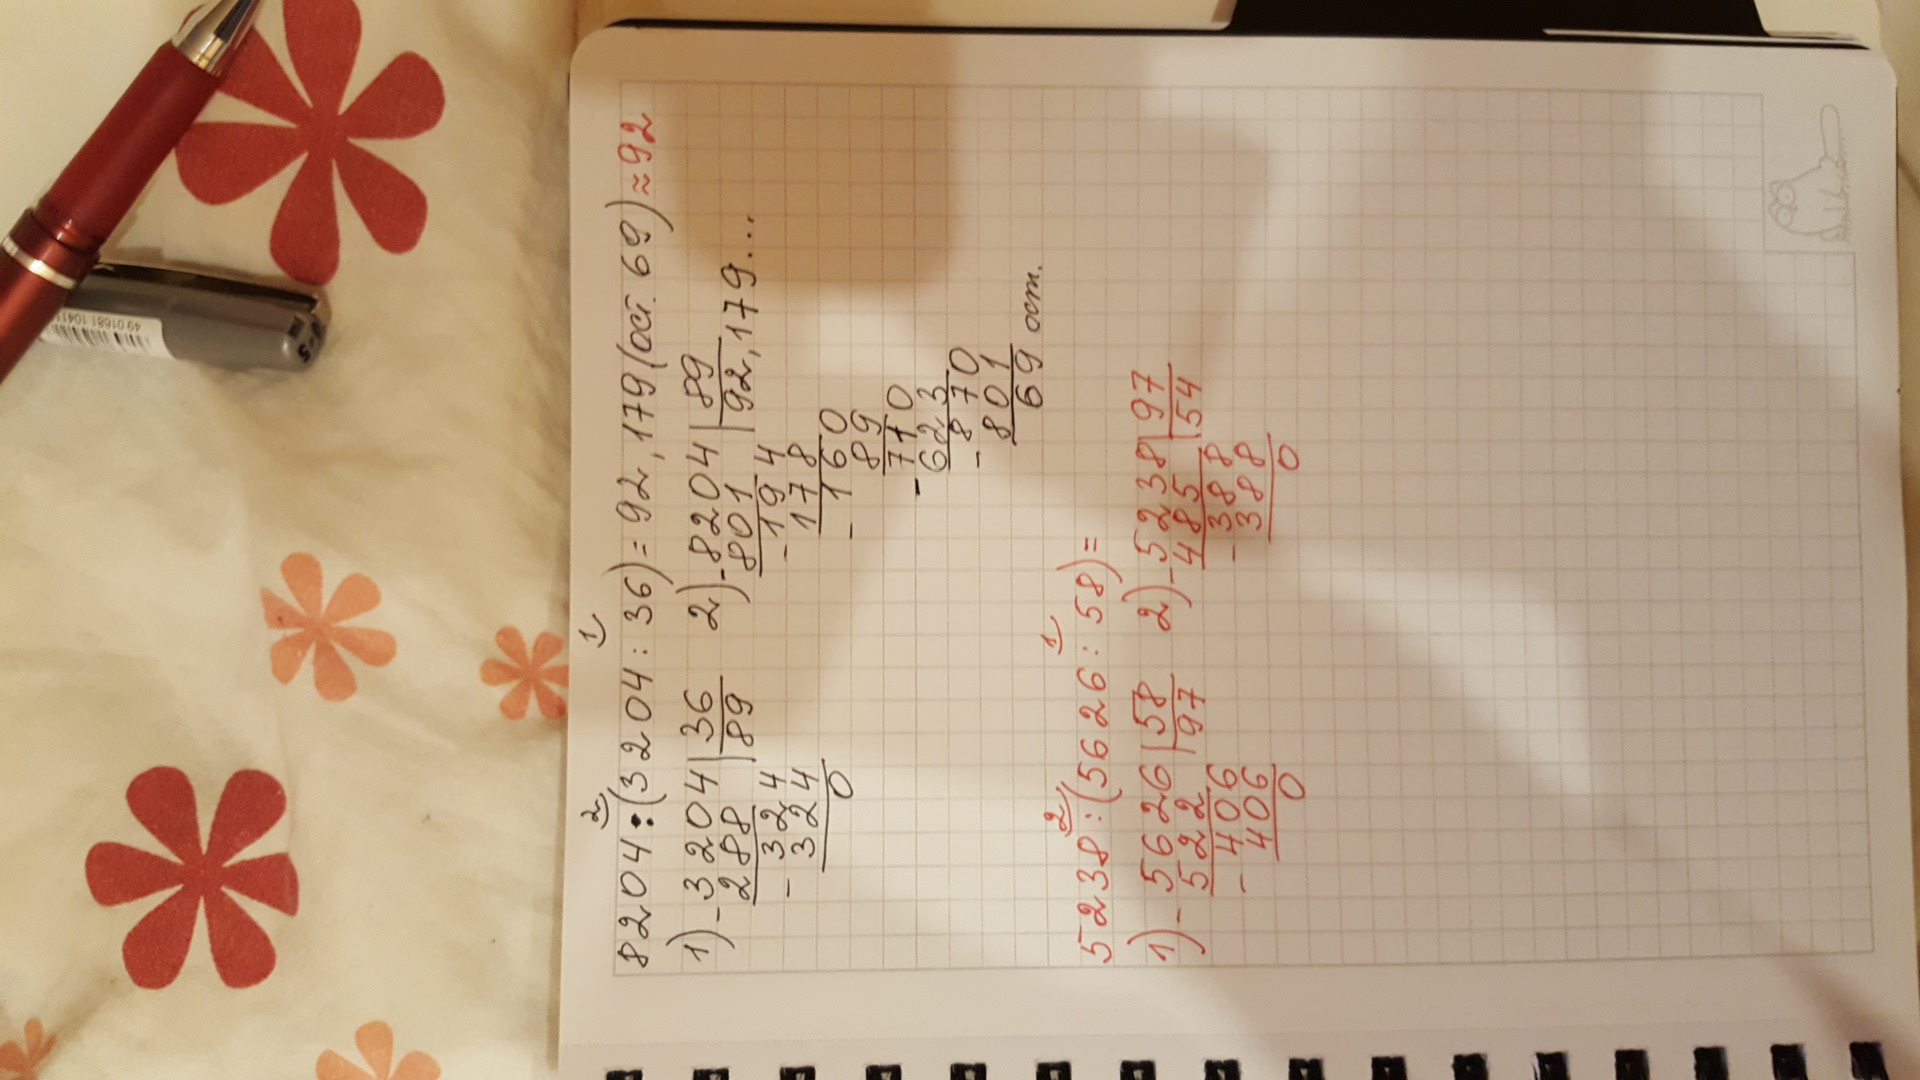 8204:(3204:36)=92,179(ост. 69)≈92
2 1
1) -3204|36 2) -8204|89
288 89 801 92,179...
-324 -194
324 178
0 -160
89
-710
623
-870
801
69 ост.
5238:(5626:58)=
2 1
1) -5626|58 2) -5238|97
522 97 485 54
-406 -388
406 388
0 0
4901681 1041